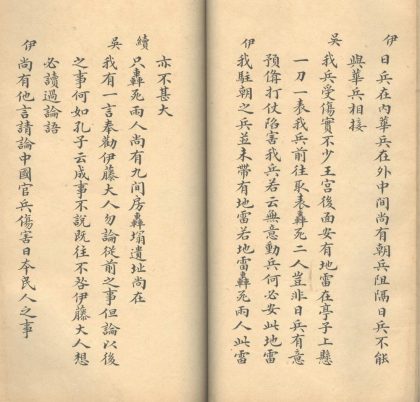 伊 日兵在內華兵在外中間尚有朝兵阻隔日兵不能
與華兵相接
吳 我兵受傷實不少王宮後面安有地雷在亭子上懸
一刀一表我兵前往取表轟死二人豈非日兵有意
預偹打仗陷害我兵若云無意動兵何必安此地雷
伊 我駐朝之兵並未帶有地雷若地雷轟死兩人此雷
亦不甚大
續 只轟死兩人尚有九間房轟塌遺址尚在
吳 我有一言奉勸伊藤大人勿論從前之事但論以後
之事何如孔子云成事不說既往不咎伊藤大人想
必讀過論語
伊 尚有他言請論中國官兵傷害日本民人之事